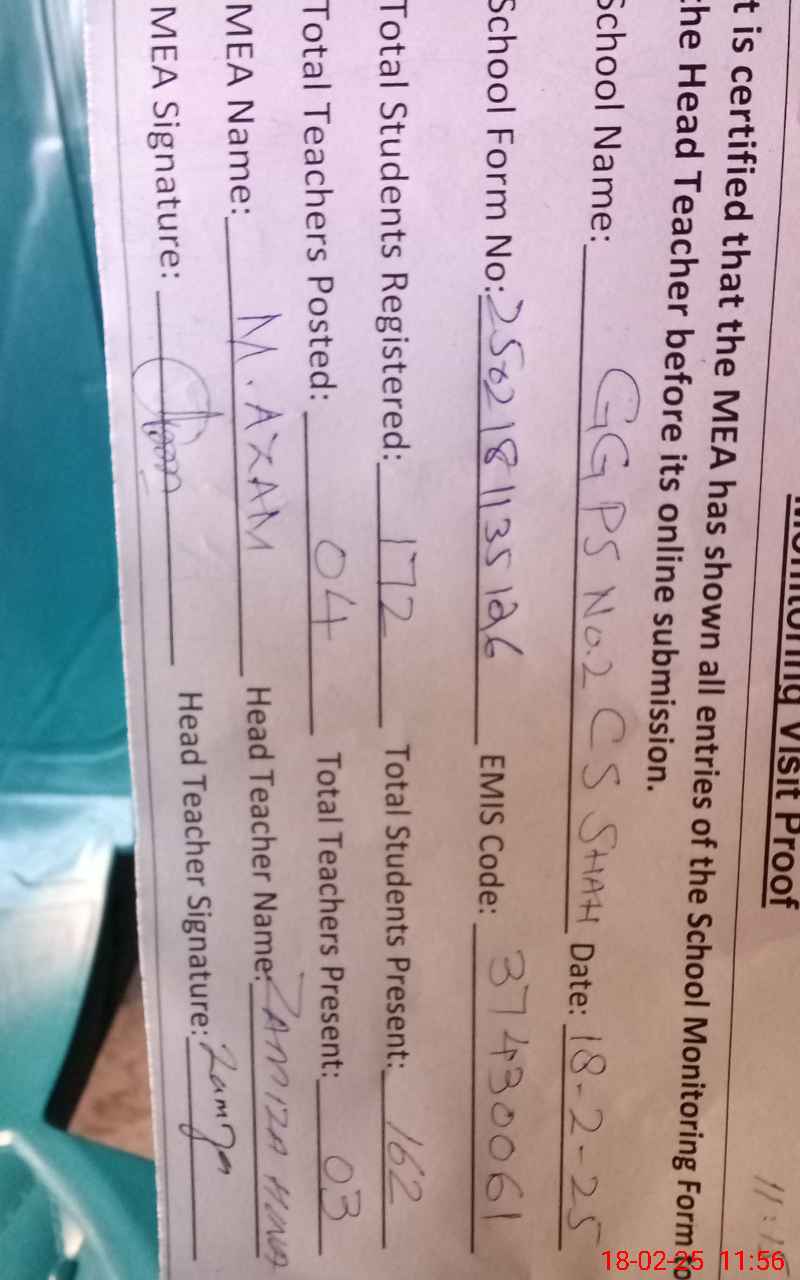 Monitoring Visit Proof
t is certified that the MEA has shown all entries of the School Monitoring Form to
the Head Teacher before its online submission.
School Name: GGPS No.2 CS SHAH Date: 18-2-25
School Form No: EMIS Code: 37430061
Total Students Registered: 172 Total Students Present: 162
Total Teachers Posted: 04 Total Teachers Present: 03
MEA Name: M. AZAM Head Teacher Name:
MEA Signature: Head Teacher Signature:
18-02-25 11:56